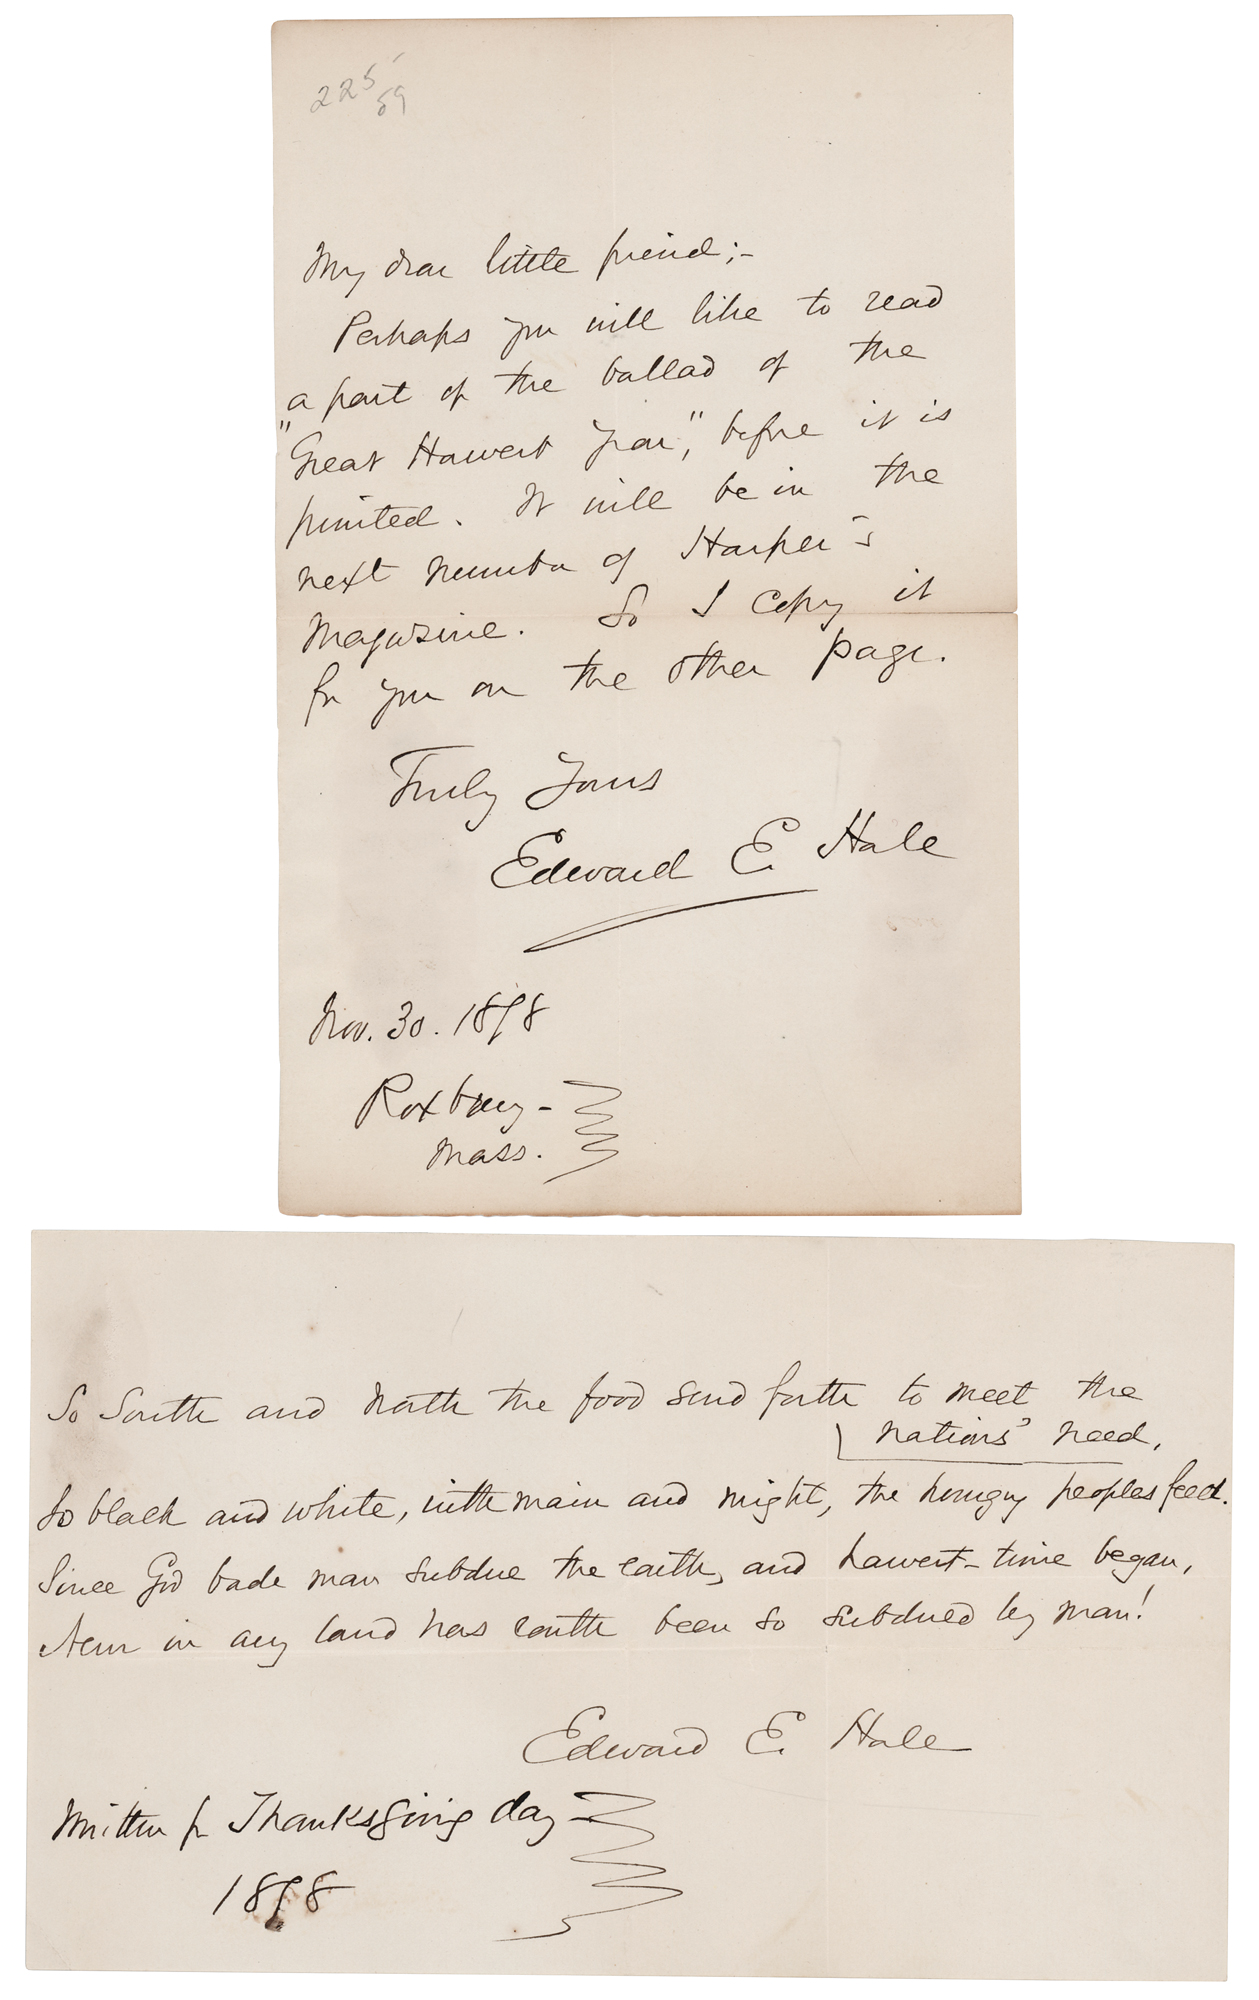 225
59
My dear little friend;-
Perhaps you will like to read
a part of the ballad of the
"Great Harvest Year," before it is
printed. It will be in the
next number of Harper's
Magazine. So I copy it
for you on the other page.
Truly Yours
Edward E. Hale
Nov. 30. 1878
Roxbury -
Mass.
So South and North the food send forth to meet the
nations' need,
So black and white, with main and might, the hungry peoples feed.
Since God bade man subdue the earth, and harvest-time began,
Never in any land has earth been so subdued by man!
Edward E. Hale
Written for Thanksgiving day -
1878